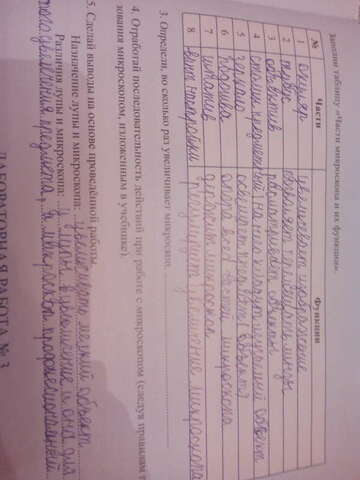 Заполни таблицу «Части микроскопа и их функции».
№ Части Функции
1 Окуляр увеличивает изображение
2 тубус
3 объектив
4 столик предметный на него кладут изучаемый объект
5 зеркало освещает предмет (объект)
6 подошва опора всех частей микроскопа
7 штатив держит микроскоп
8 винт настройки регулирует увеличение микроскопа
3. Определи, во сколько раз увеличивает микроскоп.
4. Отработай последовательность действий при работе с микроскопом (следуя правилам
зования микроскопом, изложенным в учебнике).
5. Сделай выводы на основе проведенной работы.
Назначение лупы и микроскопа: увеличивать мелкий объект
Различия лупы и микроскопа: у лупы увеличение и она для
предмета, а микроскоп профессиональный
ЛАБОРАТОРНАЯ РАБОТА № 3